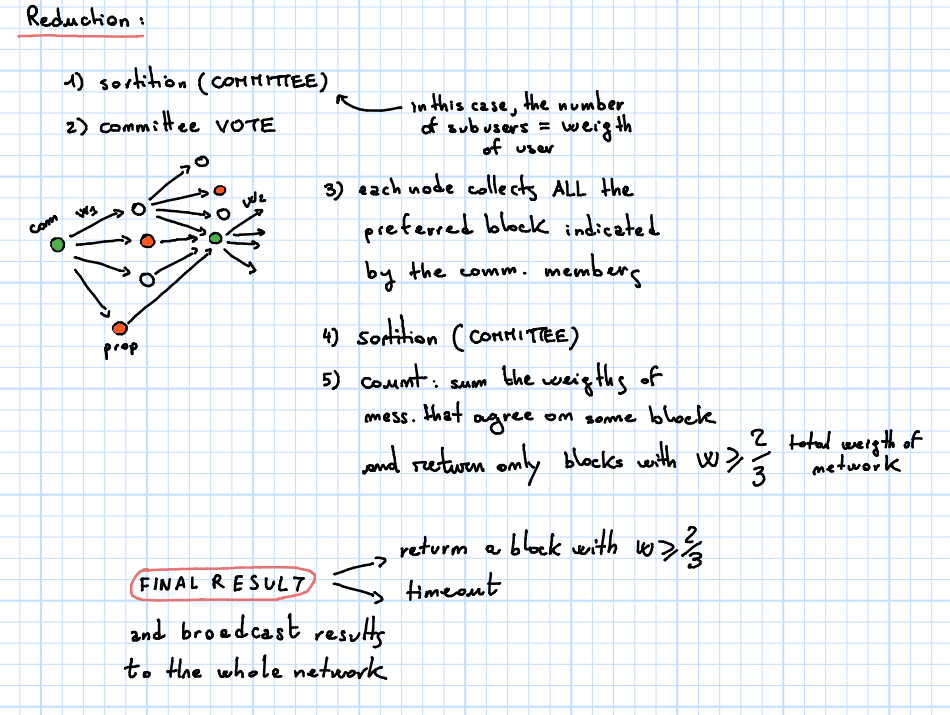 Reduction:
1) sortition (COMMITTEE)
in this case, the number
of subusers = weigth
of user
2) committee VOTE
com
w1
w2
prop
3) each node collects ALL the
preferred block indicated
by the comm. members
4) sortition (COMMITTEE)
5) count: sum the weigths of
mess. that agree on some block
and return only blocks with W ≥ 2/3 total weigth of
network
FINAL RESULT
return a block with w ≥ 2/3
timeout
and broadcast results
to the whole network